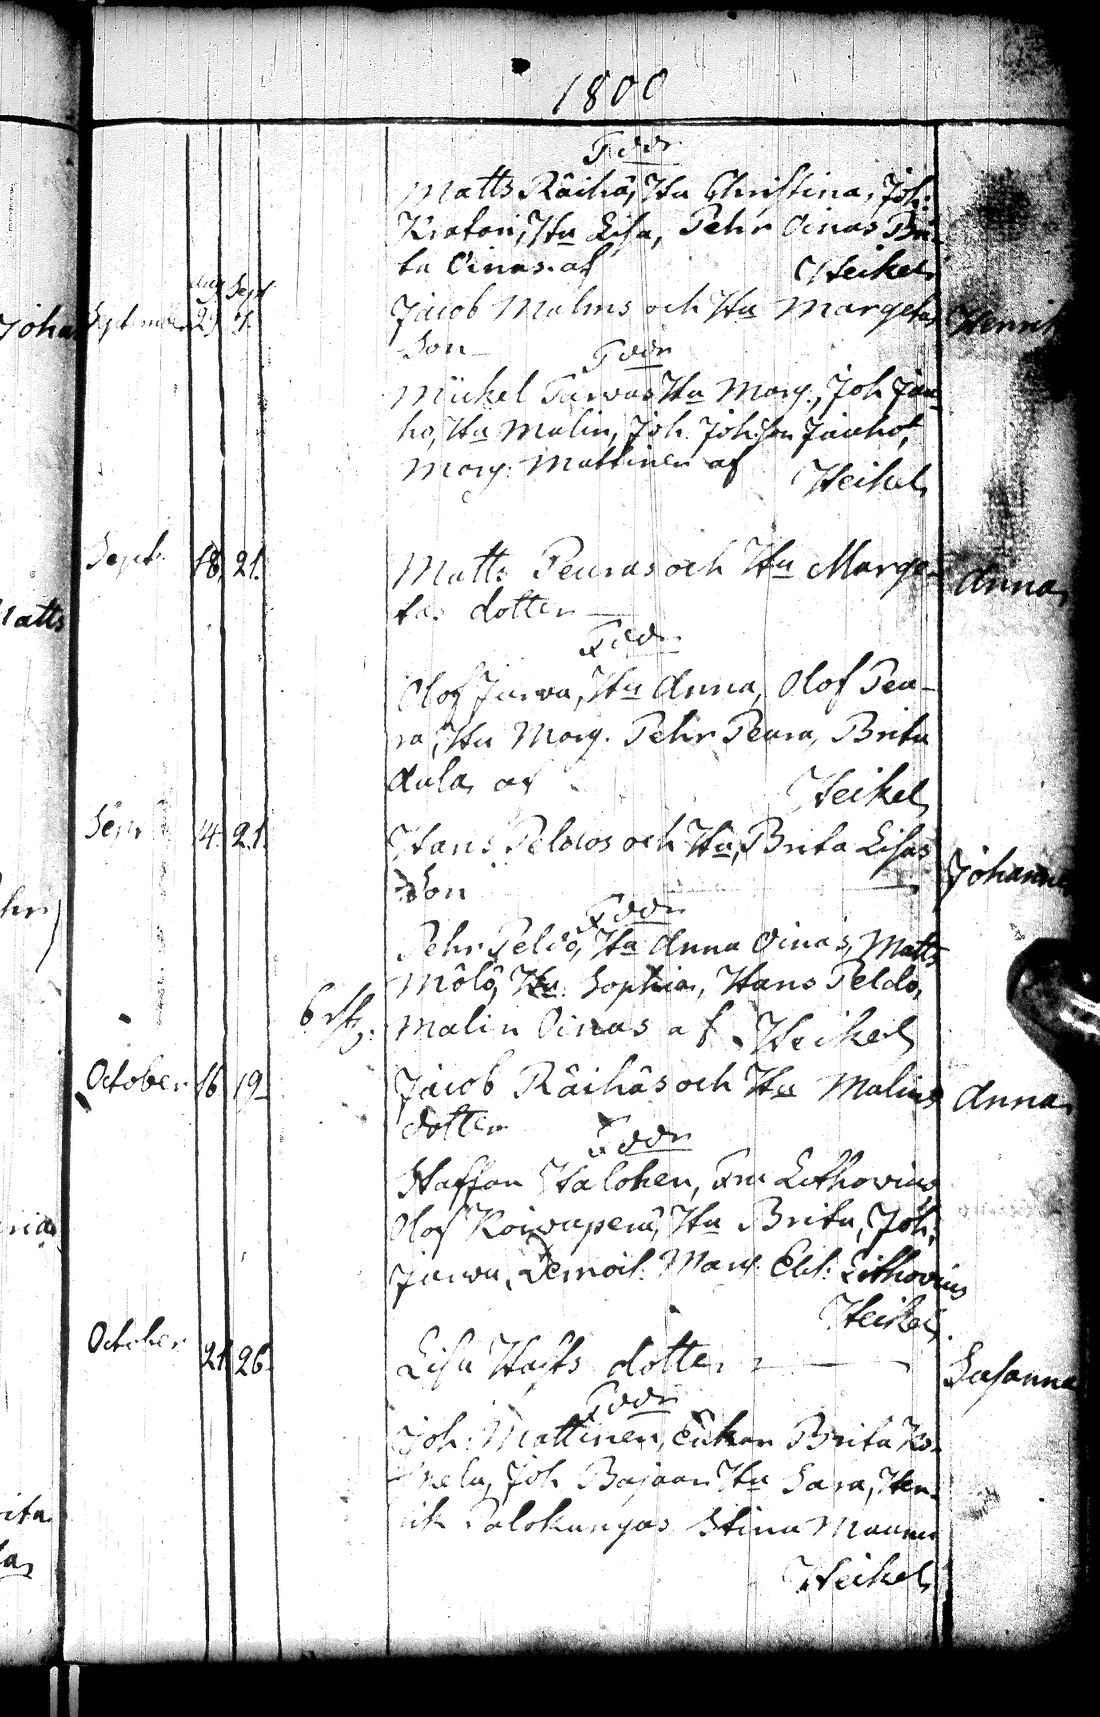 1800
Fadr
Matts Räihä, Hu Christina, Joh:
Kratari, Hu Lisa, Pehr Oinas Bri-
ta Oinas. af Heikel
Aug Sept
Johan
September 29 4. Jacob Malms och Hu Margetas Henrik
Son
Fadr
Mickel Turvas Hu Marg., Joh Jau-
ho, Hu Malin, Joh. Johsson Jauho,
Marg: Mattinen af Heikel
Sept. 18. 21. Matts Peuras och Hu Marge- Anna
tas dotter
Matts
Fadr
Olof Jurva, Hu Anna, Olof Peu-
ra, Hu Marg. Pehr Peura, Brita
Aula, af Heikel
Sept 14. 21. Hans Peldos och Hu Brita Lisas Johannes
Son
Fadr
Pehr Peldo, Hu Anna Oinas, Matts
Mölö, Hu Sophia, Hans Peldo,
Malin Oinas af Heikel
October 16 19 Jacob Räihäs och Hu Malins Anna
dotter
Fadr
Staffan Halonen, Fru Lithovius
Olof Koivuperä, Hu Brita, Joh:
Jurva, Demois: Marg. Elis: Lithovius
Heikel
October 21. 26. Lisa Hasts dotter Susanna
Fadr
Joh: Mattinen, Enkan Brita Ko-
mela, Joh Bajaan Hu Sara, Hen-
rik Palokangas Stina Maunu
Heikel